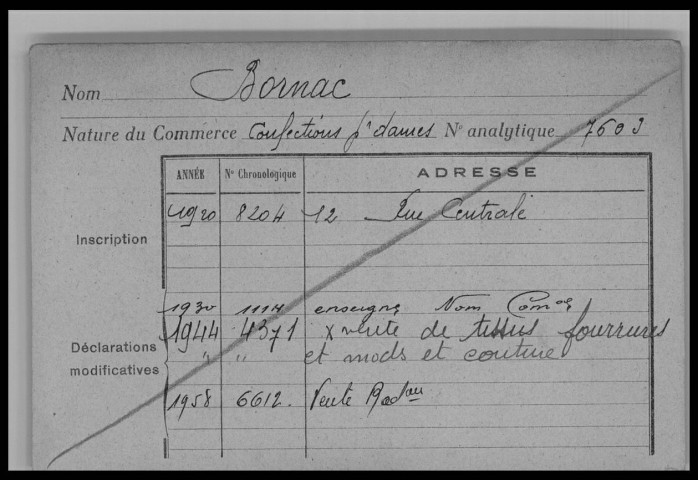 Nom Bornac
Nature du Commerce Confections pr dames No analytique 7603
ANNÉE No Chronologique ADRESSE
Inscription 1920 8204 12 Rue Centrale
1930 1114 enseigne Nom Comal
Déclarations modificatives 1944 4371 x vente de tissus fourrures
" " et mods et couture
1958 6612. Vente